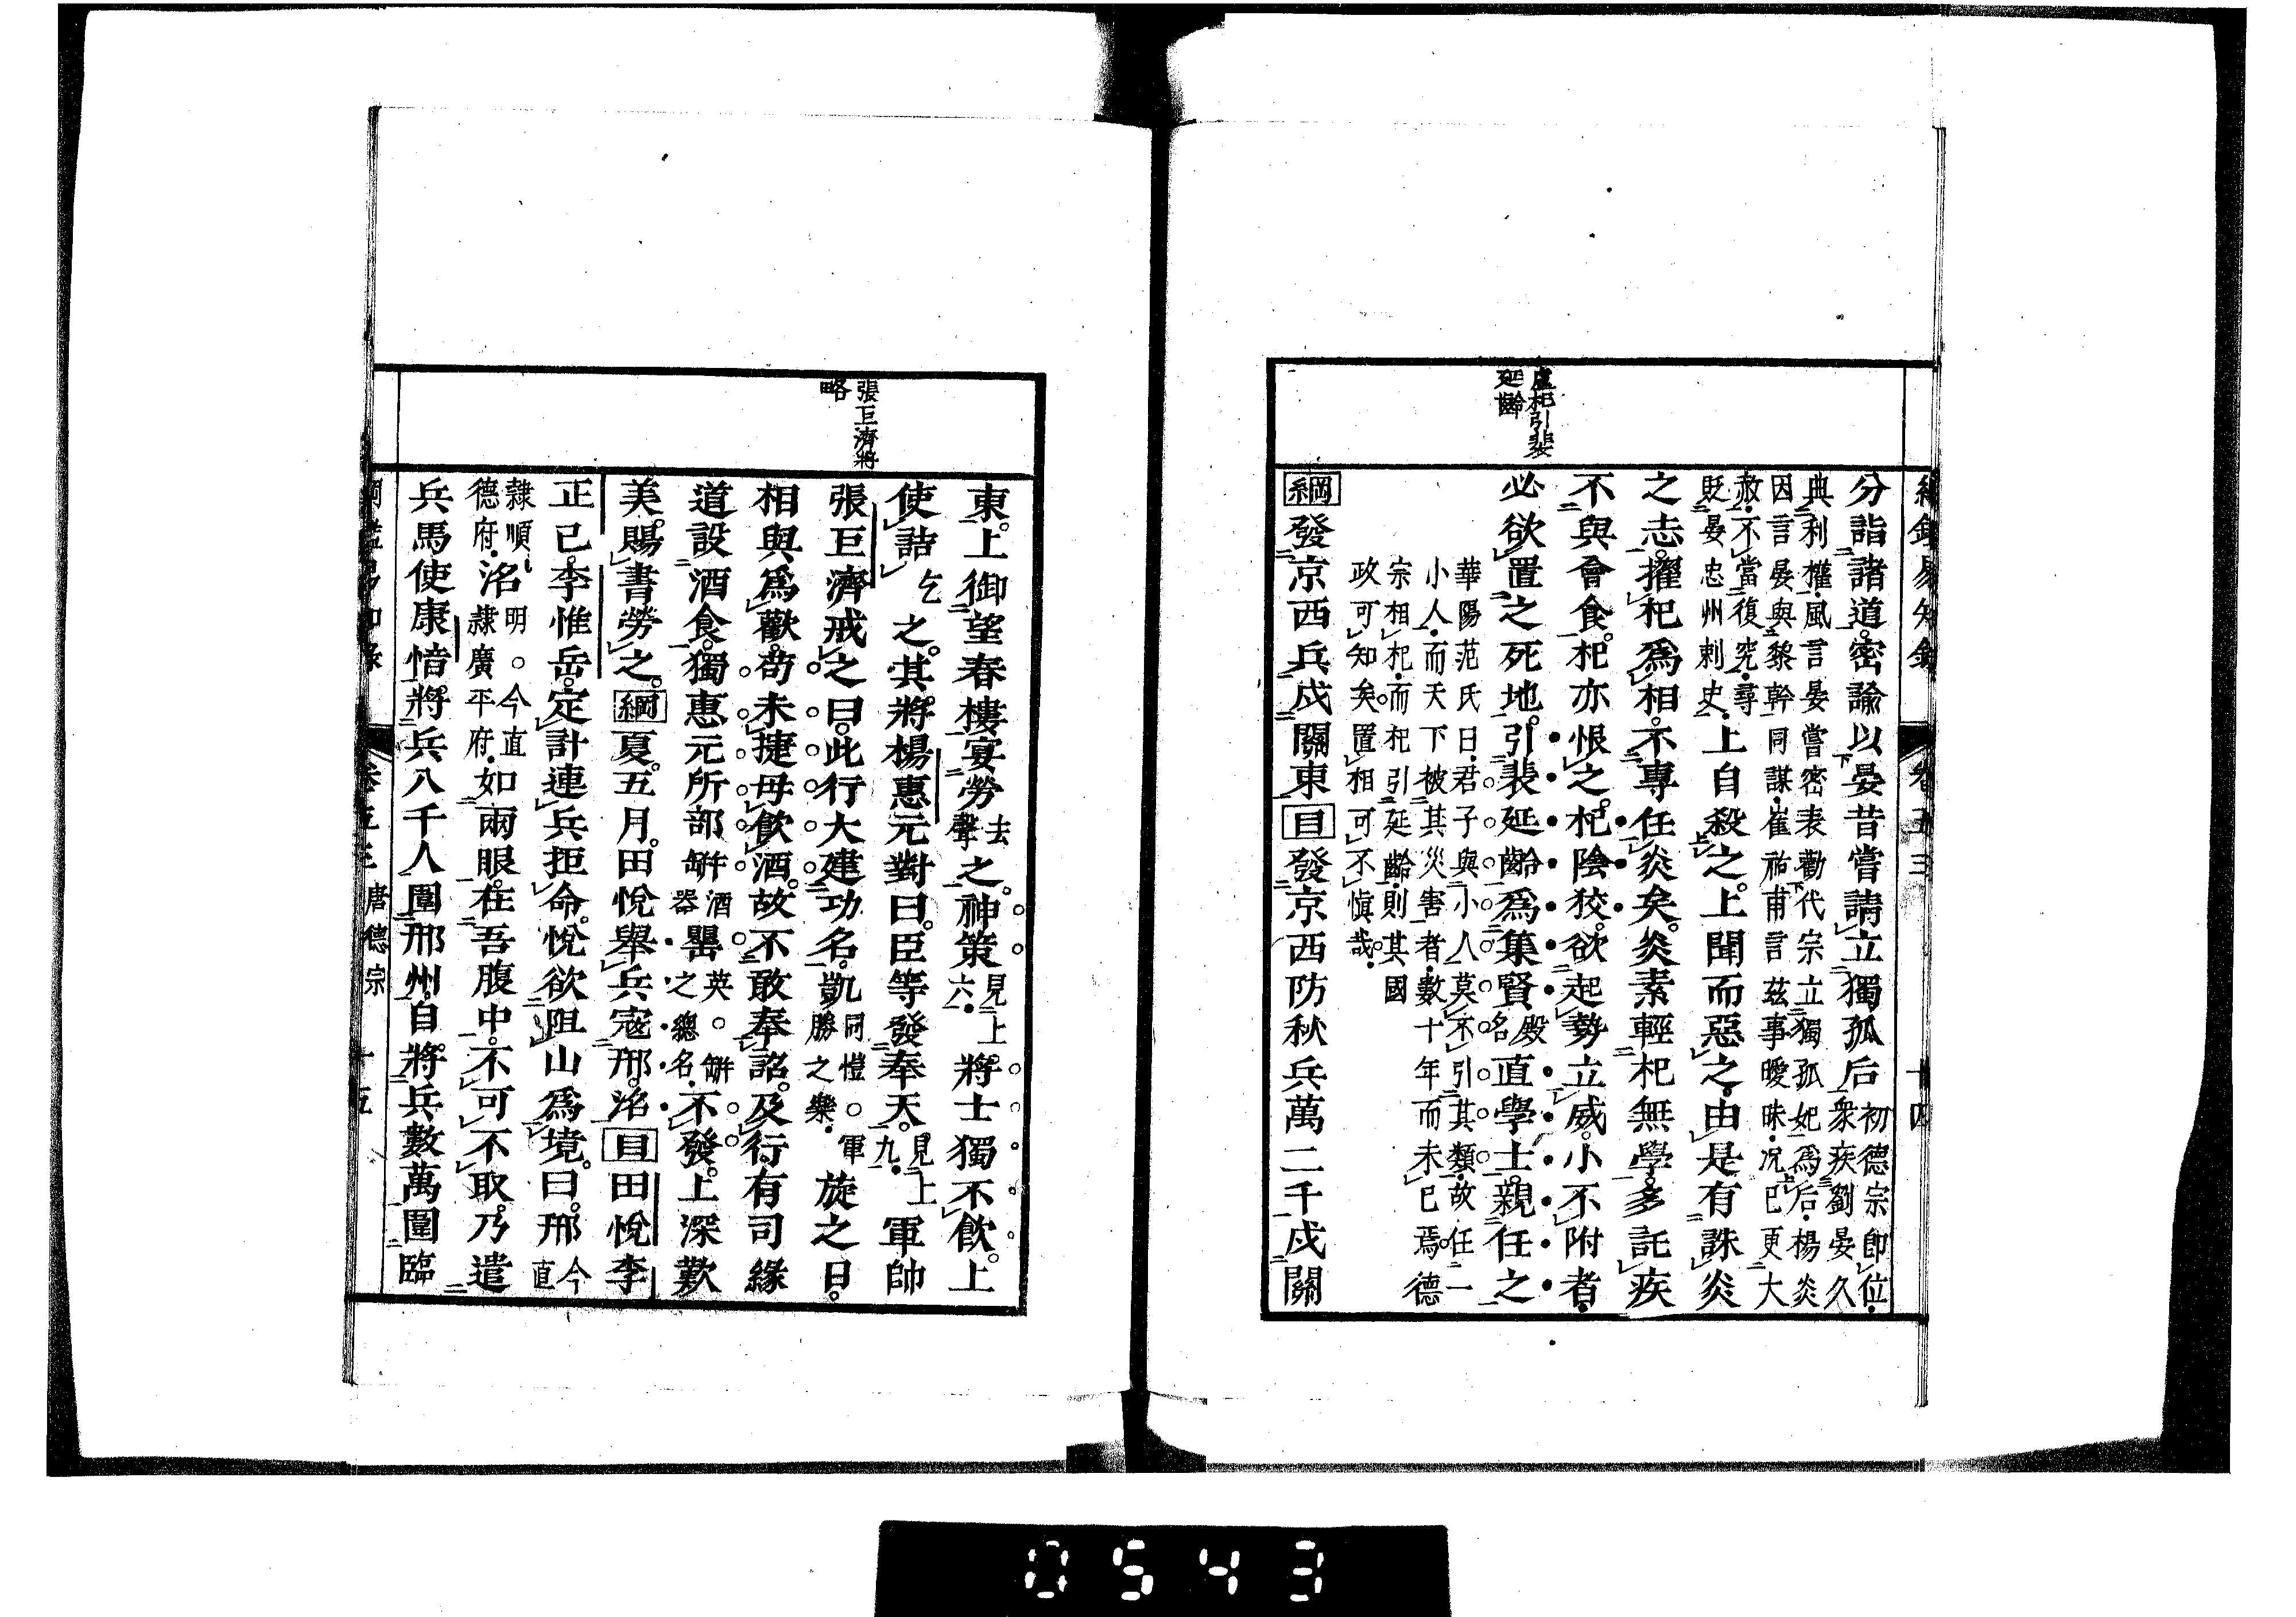 綱鑑易知錄 卷五三 十四
盧杞引裴
延齡
分詣諸道密諭以晏昔嘗請立獨孤后初德宗即位衆疾劉晏久
典利權風言晏嘗密表勸代宗立獨孤妃爲后楊炎
因言晏與黎幹同謀崔祐甫言茲事曖昧况已更大
赦不當復究尋
貶晏忠州刺史上自殺之上聞而惡之由是有誅炎
之志擢杞爲相不專任炎矣炎素輕杞無學多託疾
不與會食杞亦恨之杞陰狡欲起勢立威小不附者
必欲置之死地引裴延齡爲集賢殿名直學士親任之
華陽范氏曰君子與小人莫不引其類故任一
小人而天下被其災害者數十年而未已焉德
宗相杞而杞引延齡則其國
政可知矣置相可不愼哉
綱發京西兵戍關東目發京西防秋兵萬二千戍關
張巨濟將
略
東上御望春樓宴勞去聲之神策見上六將士獨不飮上
使詰乞之其將楊惠元對曰臣等發奉天見上九軍帥
張巨濟戒之曰此行大建功名凱同愷○軍勝之樂旋之日
相與爲歡苟未捷毋飮酒故不敢奉詔及行有司緣
道設酒食獨惠元所部缾酒器罌英○缾之總名不發上深歎
美賜書勞之綱夏五月田悅舉兵寇邢洺目田悅李
正己李惟岳定計連兵拒命悅欲阻山爲境曰邢今直
隸順德府洺明○今直隸廣平府如兩眼在吾腹中不可不取乃遣
兵馬使康愔將兵八千人圍邢州自將兵數萬圍臨
綱鑑易知錄 卷五三 唐德宗 十五
0543